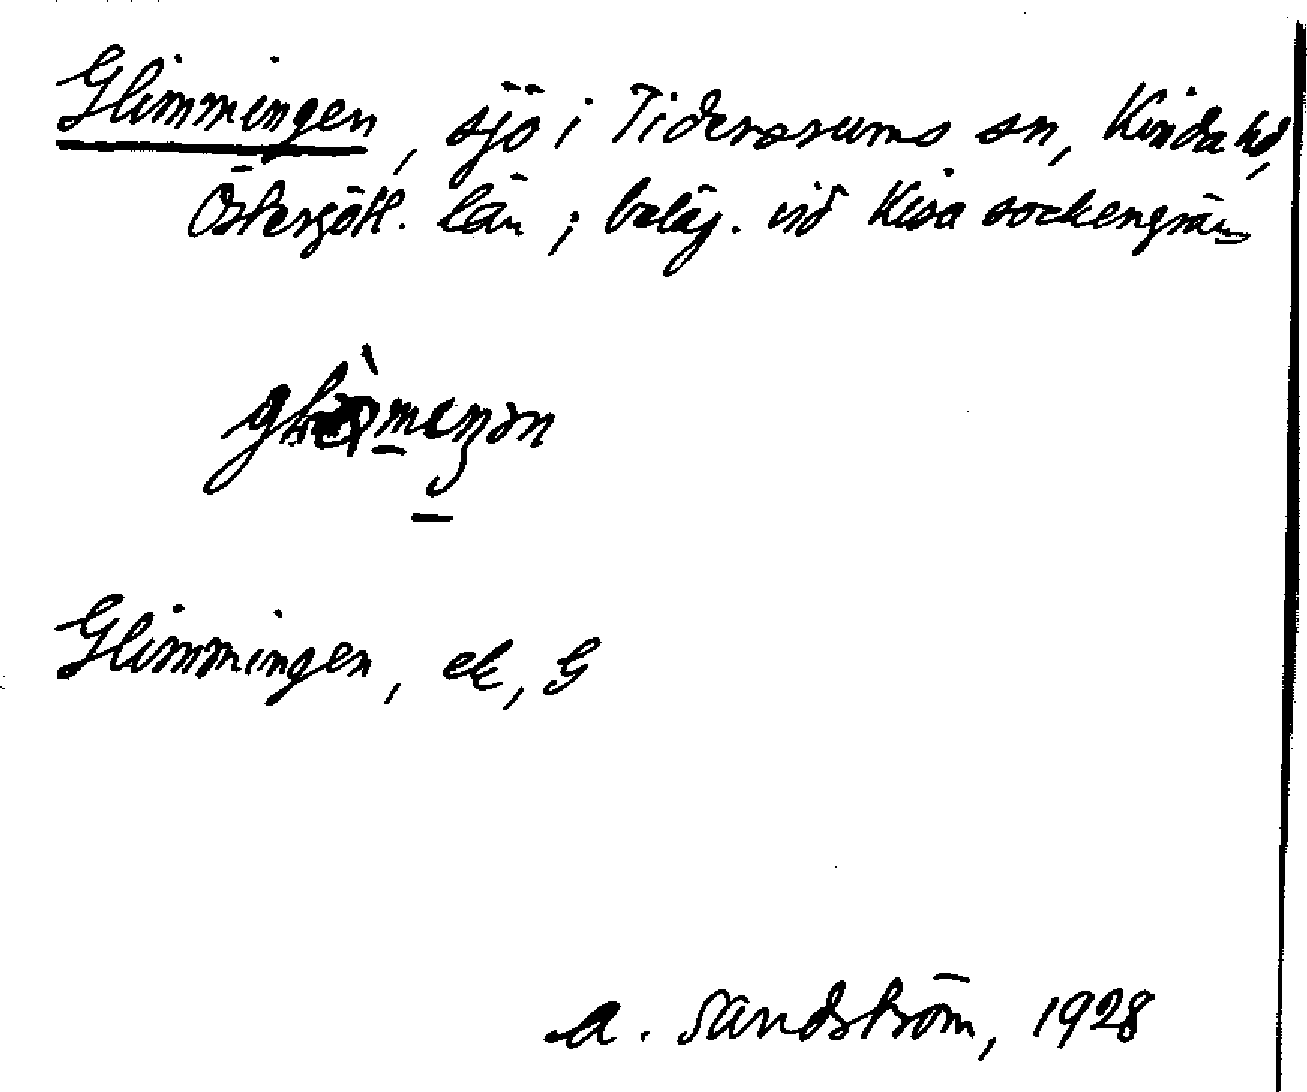 Glimmingen, sjö i Tidersrums sn, Kinda hd,
Östergötl. län; beläg. vid Kisa sockengräns
Glimmingen, ek, G
A. Sandström, 1928